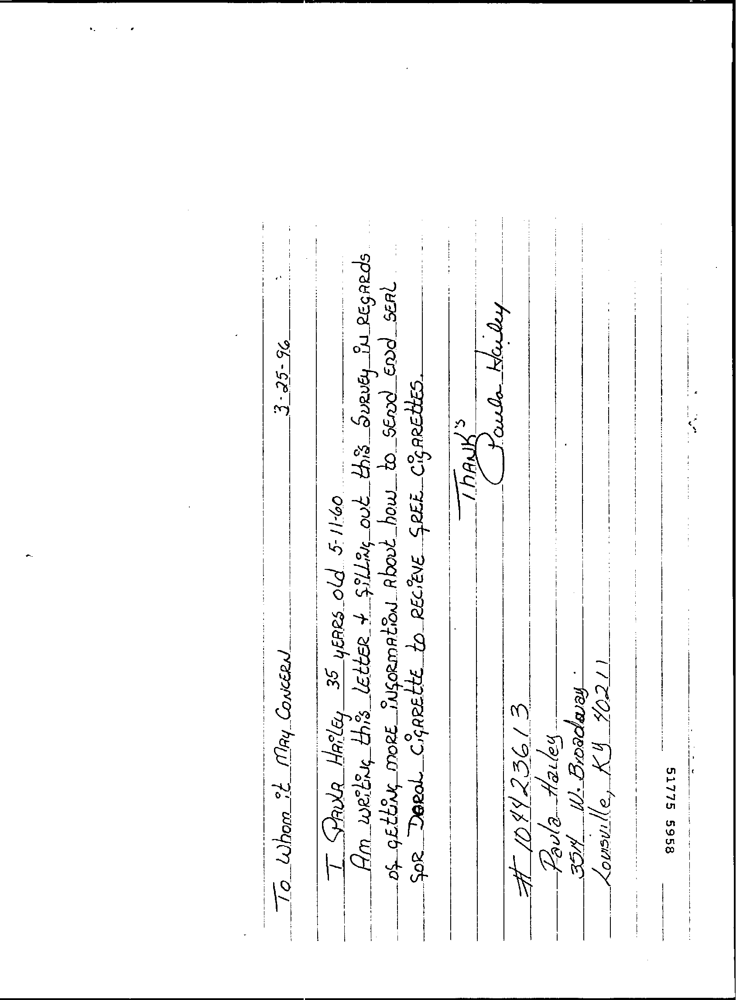 3-25-96
To Whom it May Concern
I Paula Hailey 35 years old 5-11-60
Am writing this letter + filling out this survey in regards
of getting more information about how to send end seal
for Doral cigarette to recieve free cigarettes.
Thank's
Paula Hailey
# 1044423613
Paula Hailey
3514 W. Broadway
Louisville, KY 40211
51775 5958